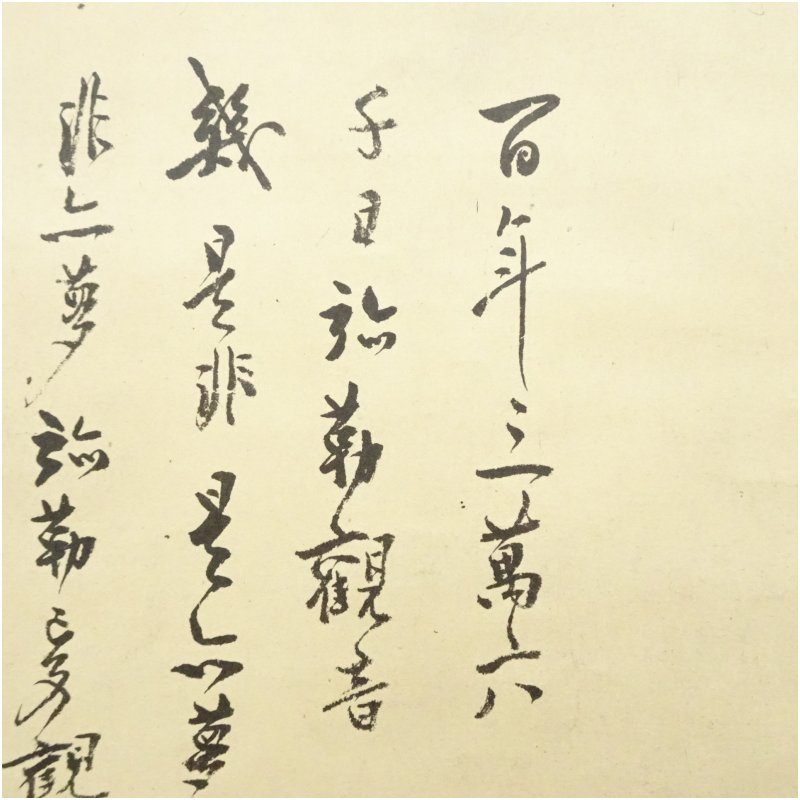 百年三萬六
千日弥勒觀音
幾是非是亦夢
非亦夢弥勒夢觀